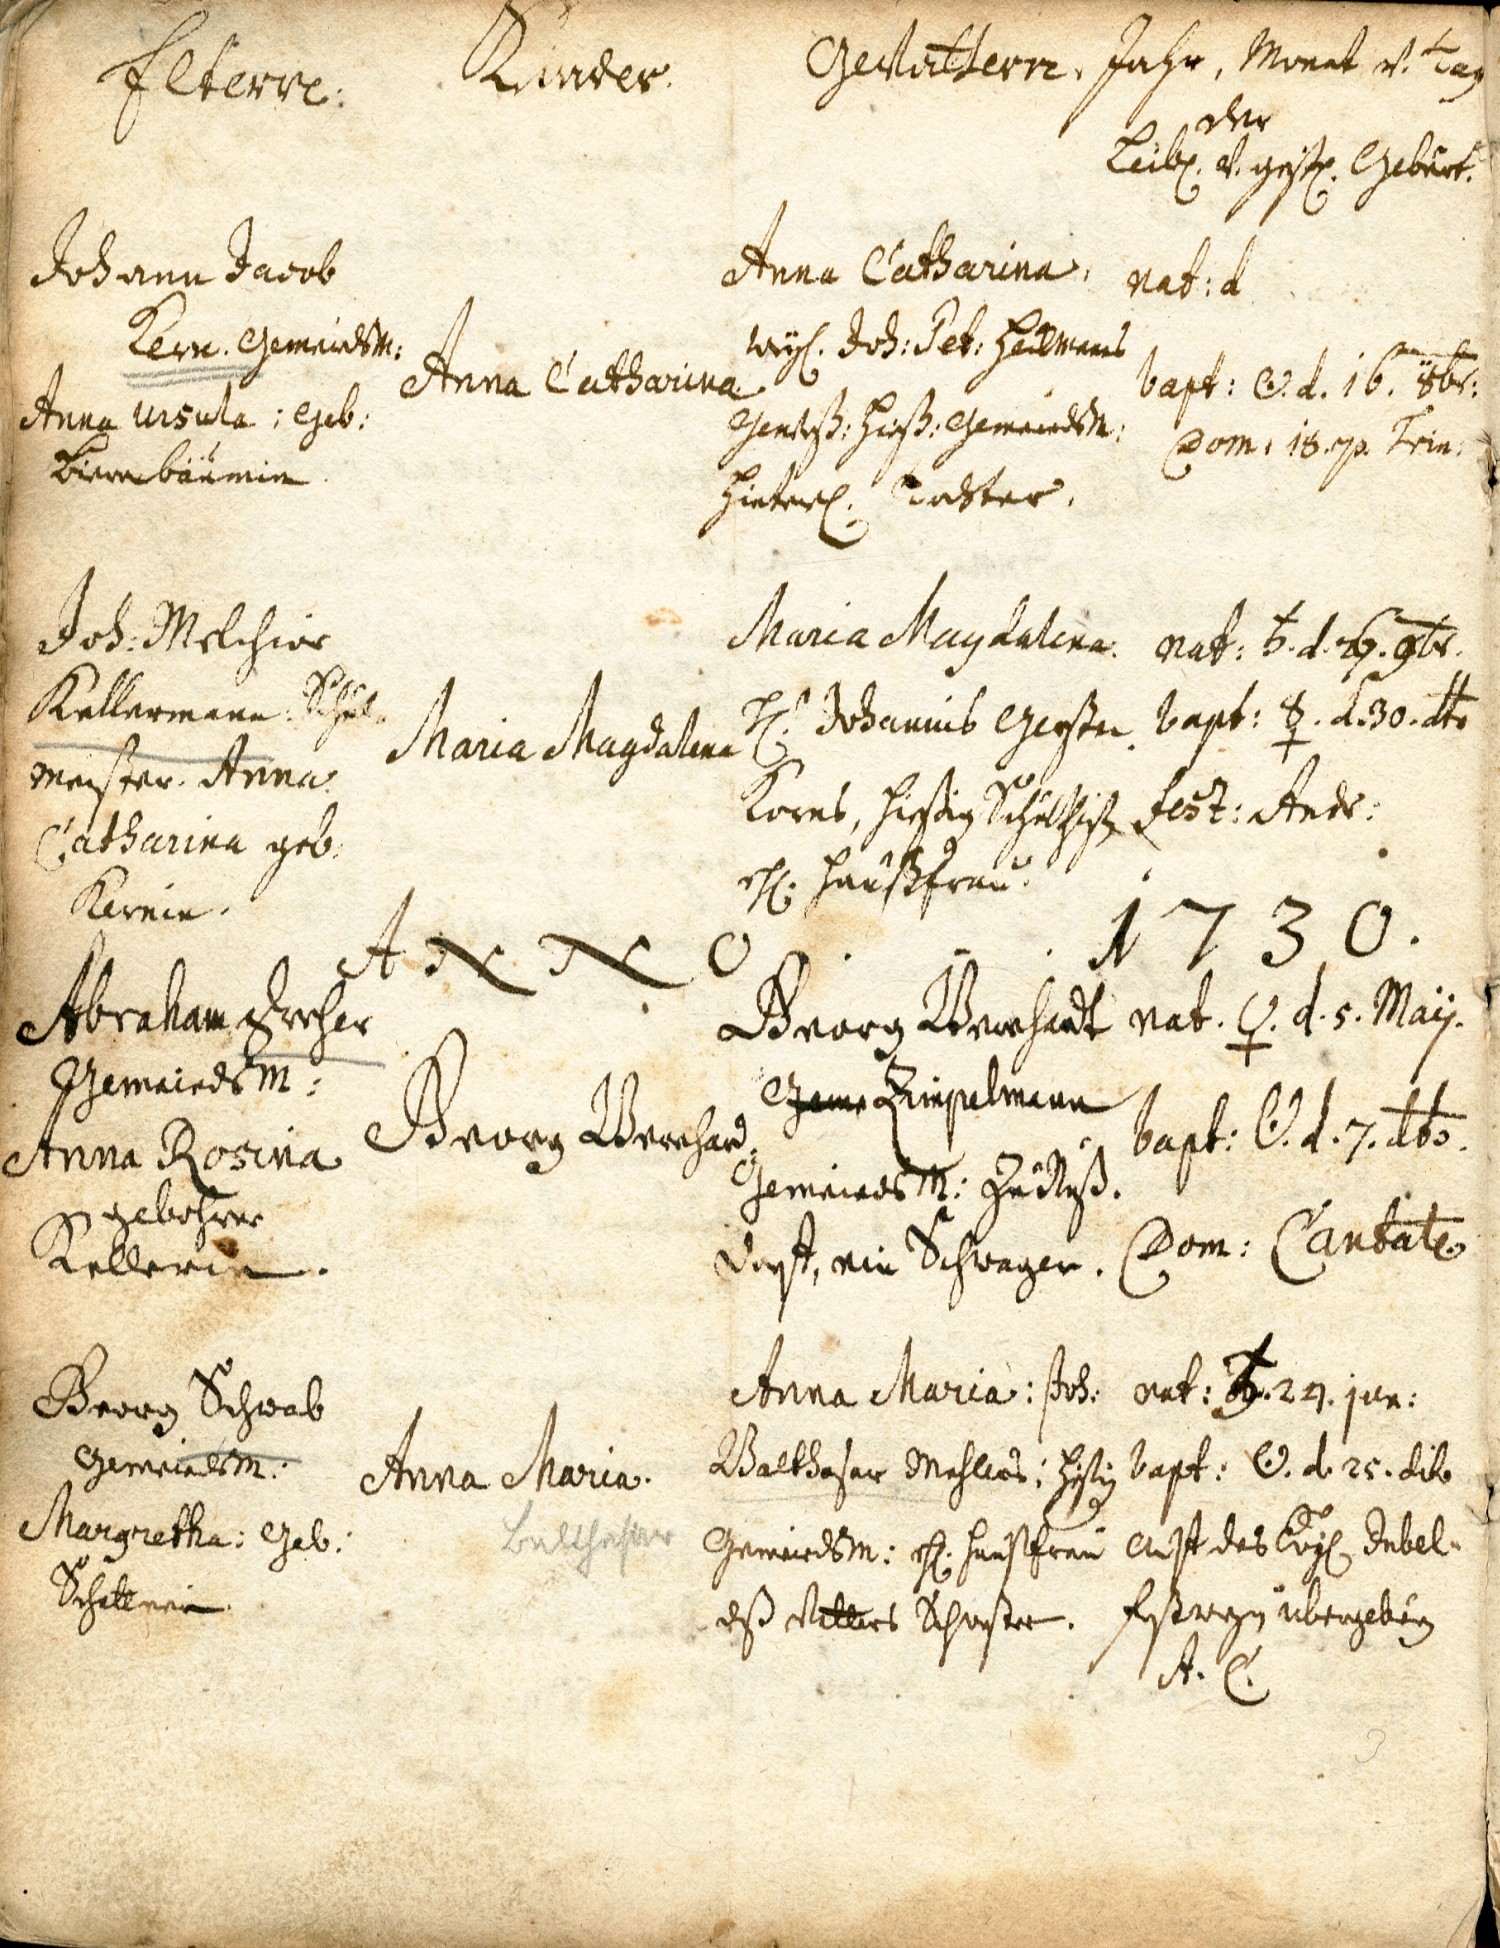 Elterrn:
Kinder.
Gevatterrn. Jahr, Monat v. Tag
der
Leibl. v. geistl. Geburt.
Johann Jacob
Kern. Gemeindsm:
Anna Ursula: Geb:
Biernbäumin.
Anna Catharina
Anna Catharina,
weyl. Joh: Pet: Heilmans
Gemeindsm:
hinterl. Tochter.
nat: d
bapt: ☉. d. 16. 8br:
Dom: 18. p. Trin:
Joh: Melchior
Kellermann. Schul-
meister. Anna
Catharina geb:
Kernin.
Maria Magdalena
Maria Magdalena.
Johannis Georg
Korns, hiesig Schultheiß
ehl. Haußfrau.
nat: ♄. d. 26. 9br.
bapt: ☿. d. 30. dto
fest: Andr:
ANNO 1730.
Abraham
Gemeindsm:
Anna Rosina
gebohrne
Kellerin.
Georg Wernhard.
Georg Wernhardt
Zimpelmann
Gemeindsm:
ein Schwager.
nat. ♀. d. 5. Maij.
bapt: ☉. d. 7. dto.
Dom: Cantate.
Georg Schwab
Gemeindsm:
Margretha: Geb:
Anna Maria.
Balthasar
Anna Maria: Joh:
Balthasar hiesig
Gemeindsm: ehl. Haußfrau
deß Vatters Schwester.
nat: ♄. 24. jun:
bapt: ☉. d. 25. dito
ist des Jubel-
übergebung
A. C.
3